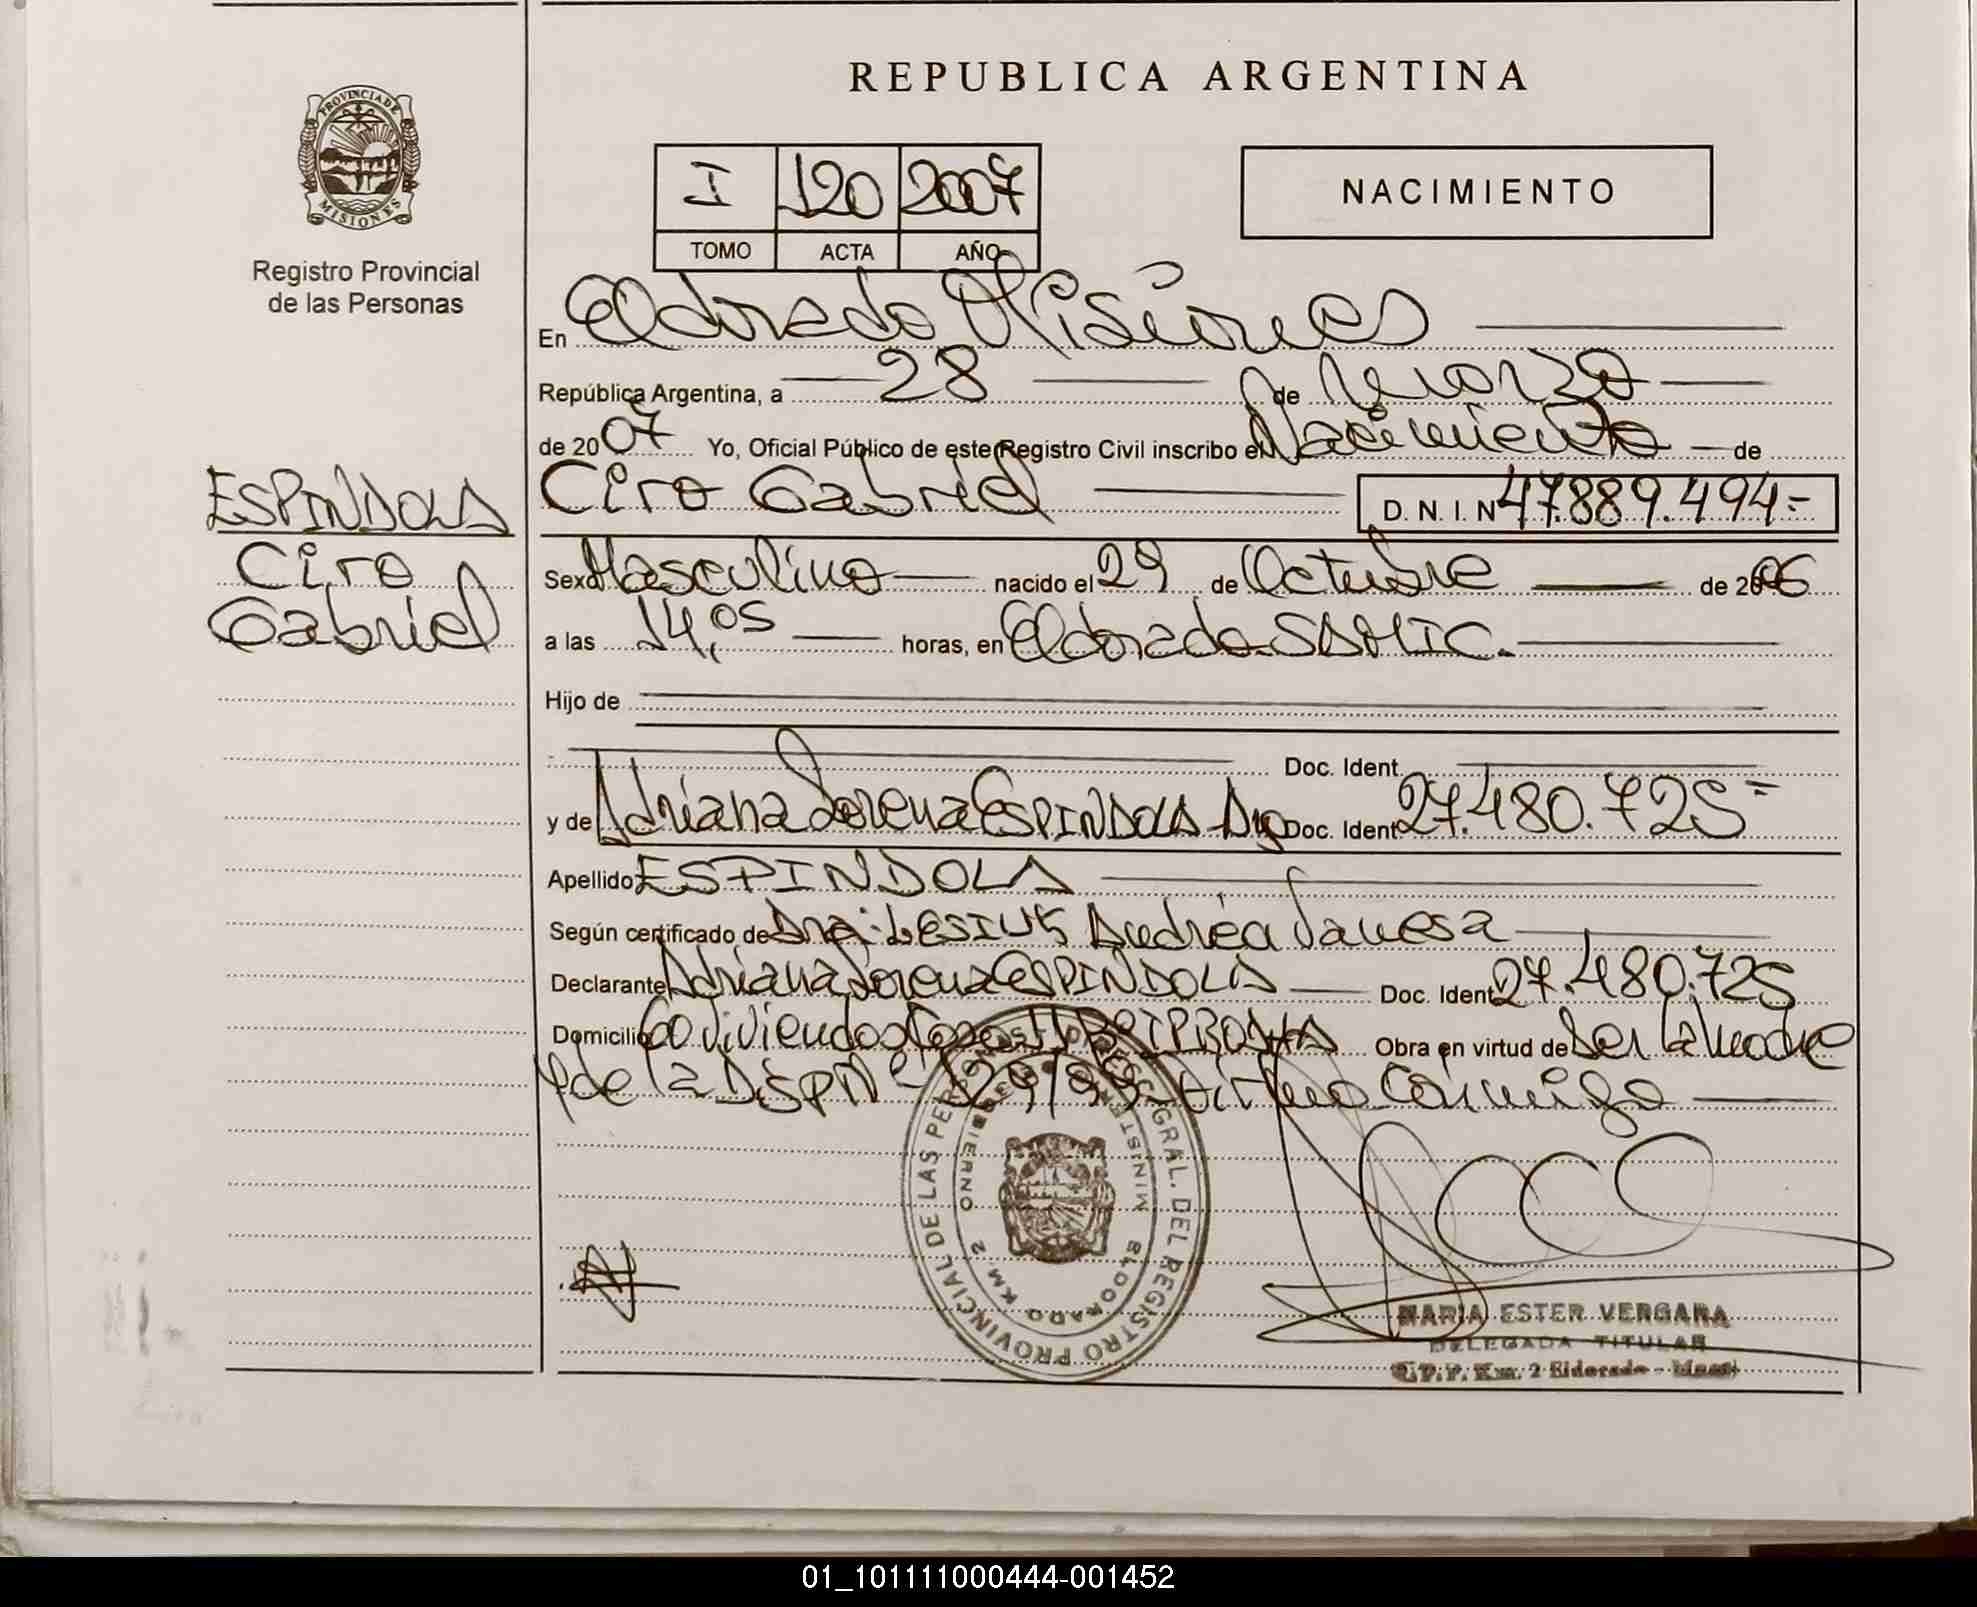 REPUBLICA ARGENTINA
PROVINCIA DE
MISIONES
Registro Provincial
de las Personas
I 120 2007
TOMO ACTA AÑO
NACIMIENTO
En Eldorado Misiones
República Argentina, a 28 de Marzo
de 2007 Yo, Oficial Público de este Registro Civil inscribo el Nacimiento de
ESPINDOLA
Ciro
Gabriel
Ciro Gabriel D. N. I. N 47.889.494=
Sexo Masculino nacido el 29 de Octubre de 2006
a las 14,05 horas, en Eldorado SAMIC.
Hijo de
Doc. Ident.
y de Adriana Lorena ESPINDOLA Arg Doc. Ident 27.480.725=
Apellido ESPINDOLA
Según certificado de Dra: LESIUK Andréa Vanesa
Declarante Adriana Lorena ESPINDOLA Doc. Ident 27.480.725
Domicilio 60 viviendas Casa Obra en virtud de Ser la Madre
y de la DispNº 129/99 firma Conmigo
REGISTRO PROVINCIAL DE LAS PER
GRAL. DEL
MINISTER
GOBIERNO
ELDORADO KM 2
MARIA ESTER VERGARA
DELEGADA TITULAR
R.P.P. Km. 2 Eldorado - Mnes
01_101111000444-001452